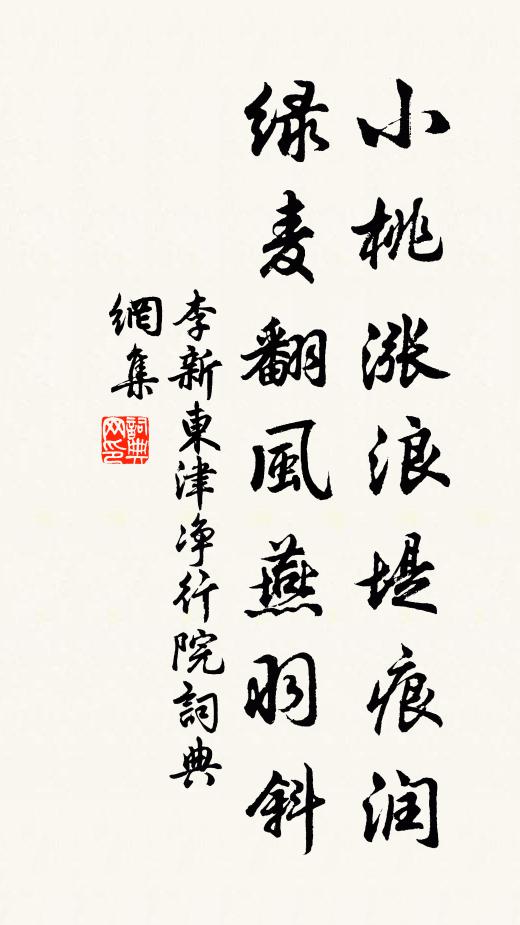 小桃涨浪堤痕润
绿麦翻風燕羽斜
李新東津净行院詞典
網集
詞典
网印